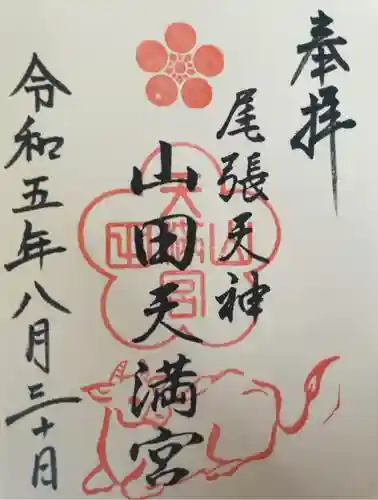 奉拝
尾張天神
山田天満宮
令和五年八月三十日